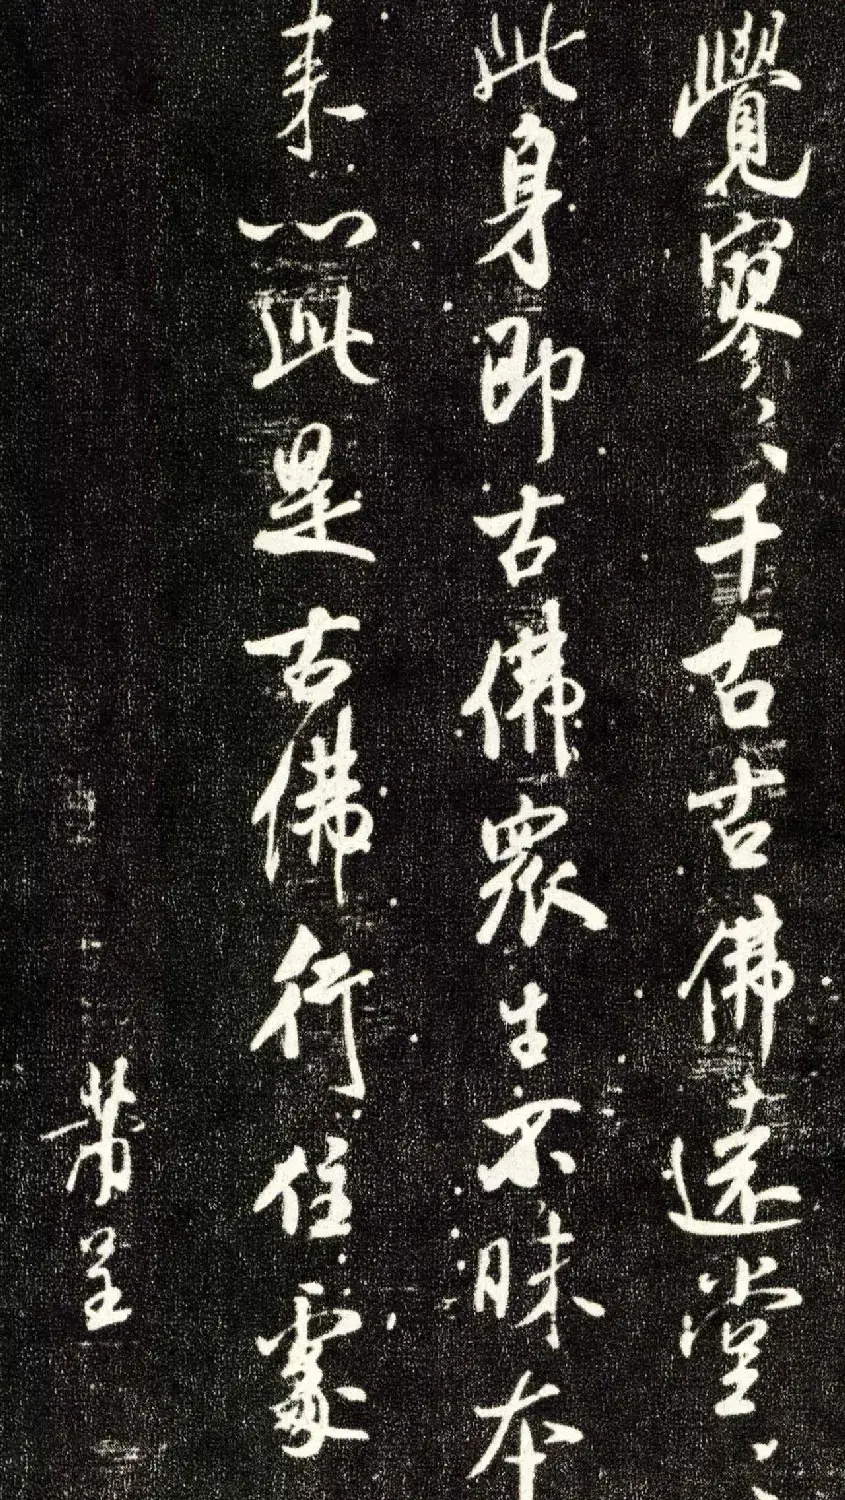 覺寥〻千古古佛遠堂〻
此身即古佛眾生不昧本
来心此是古佛行住處
芾呈